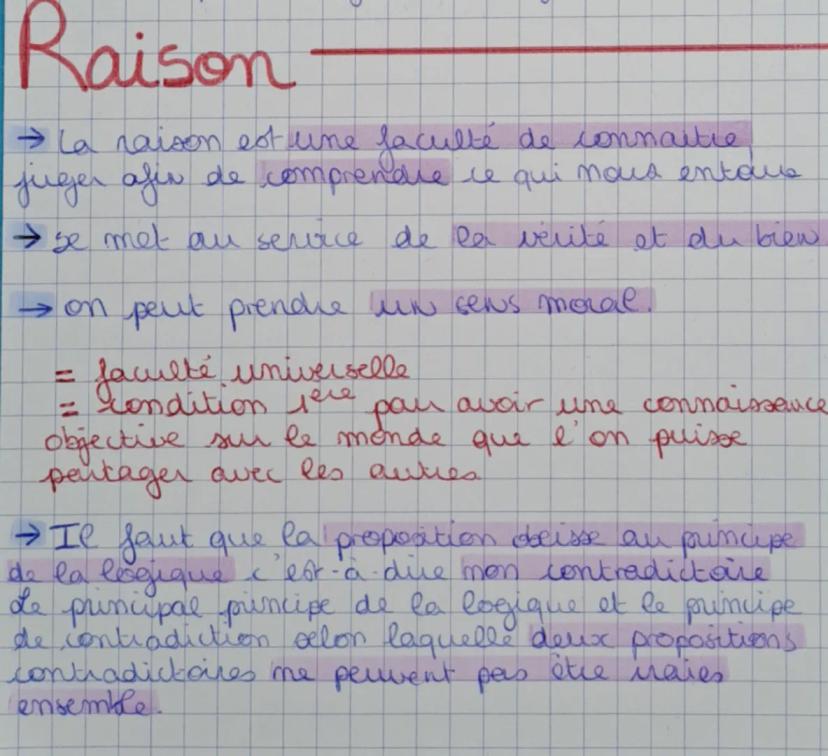 Raison
→ La raison est une faculté de connaitre,
juger afin de comprendre ce qui nous entoure
→ se met au service de la vérité et du bien
→ on peut prendre un sens moral.
= faculté universelle
= condition 1ère pour avoir une connaissance
objective sur le monde que l'on puisse
partager avec les autres
→ Il faut que la proposition obeisse au principe
de la logique c'est-à-dire non contradictoire
Le principal principe de la logique et le principe
de contradiction selon laquelle deux propositions
contradictoires ne peuvent pas être vraies
ensemble.